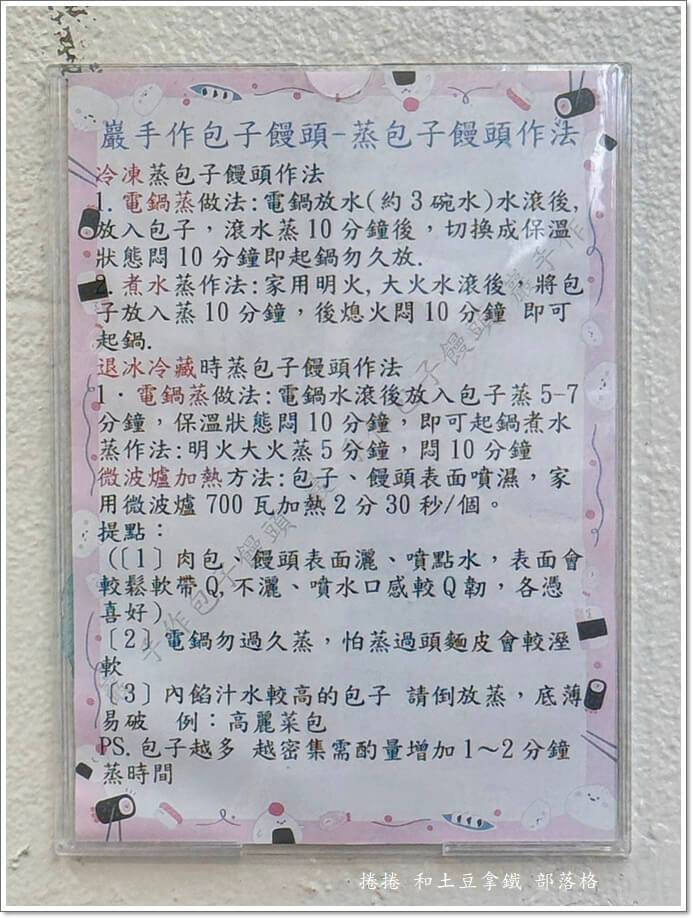 巖手作包子饅頭-蒸包子饅頭作法
冷凍蒸包子饅頭作法
1. 電鍋蒸做法:電鍋放水(約 3 碗水)水滾後,
放入包子，滾水蒸 10 分鐘後，切換成保溫
狀態悶 10 分鐘即起鍋勿久放.
2. 煮水蒸作法:家用明火, 大火水滾後，將包
子放入蒸 10 分鐘，後熄火悶 10 分鐘 即可
起鍋.
退冰冷藏時蒸包子饅頭作法
1．電鍋蒸做法:電鍋水滾後放入包子蒸 5-7
分鐘，保溫狀態悶 10 分鐘，即可起鍋煮水
蒸作法:明火大火蒸 5 分鐘，悶 10 分鐘
微波爐加熱方法:包子、饅頭表面噴濕，家
用微波爐 700 瓦加熱 2 分 30 秒/個。
提點：
（〔1〕肉包、饅頭表面灑、噴點水，表面會
較鬆軟帶 Q, 不灑、噴水口感較 Q 韌，各憑
喜好）
〔2〕電鍋勿過久蒸，怕蒸過頭麵皮會較溼
軟
〔3〕內餡汁水較高的包子 請倒放蒸，底薄
易破 例：高麗菜包
PS. 包子越多 越密集需酌量增加 1～2 分鐘
蒸時間
巖手作包子饅頭 巖手作包子饅頭 巖手作
捲捲 和土豆拿鐵 部落格